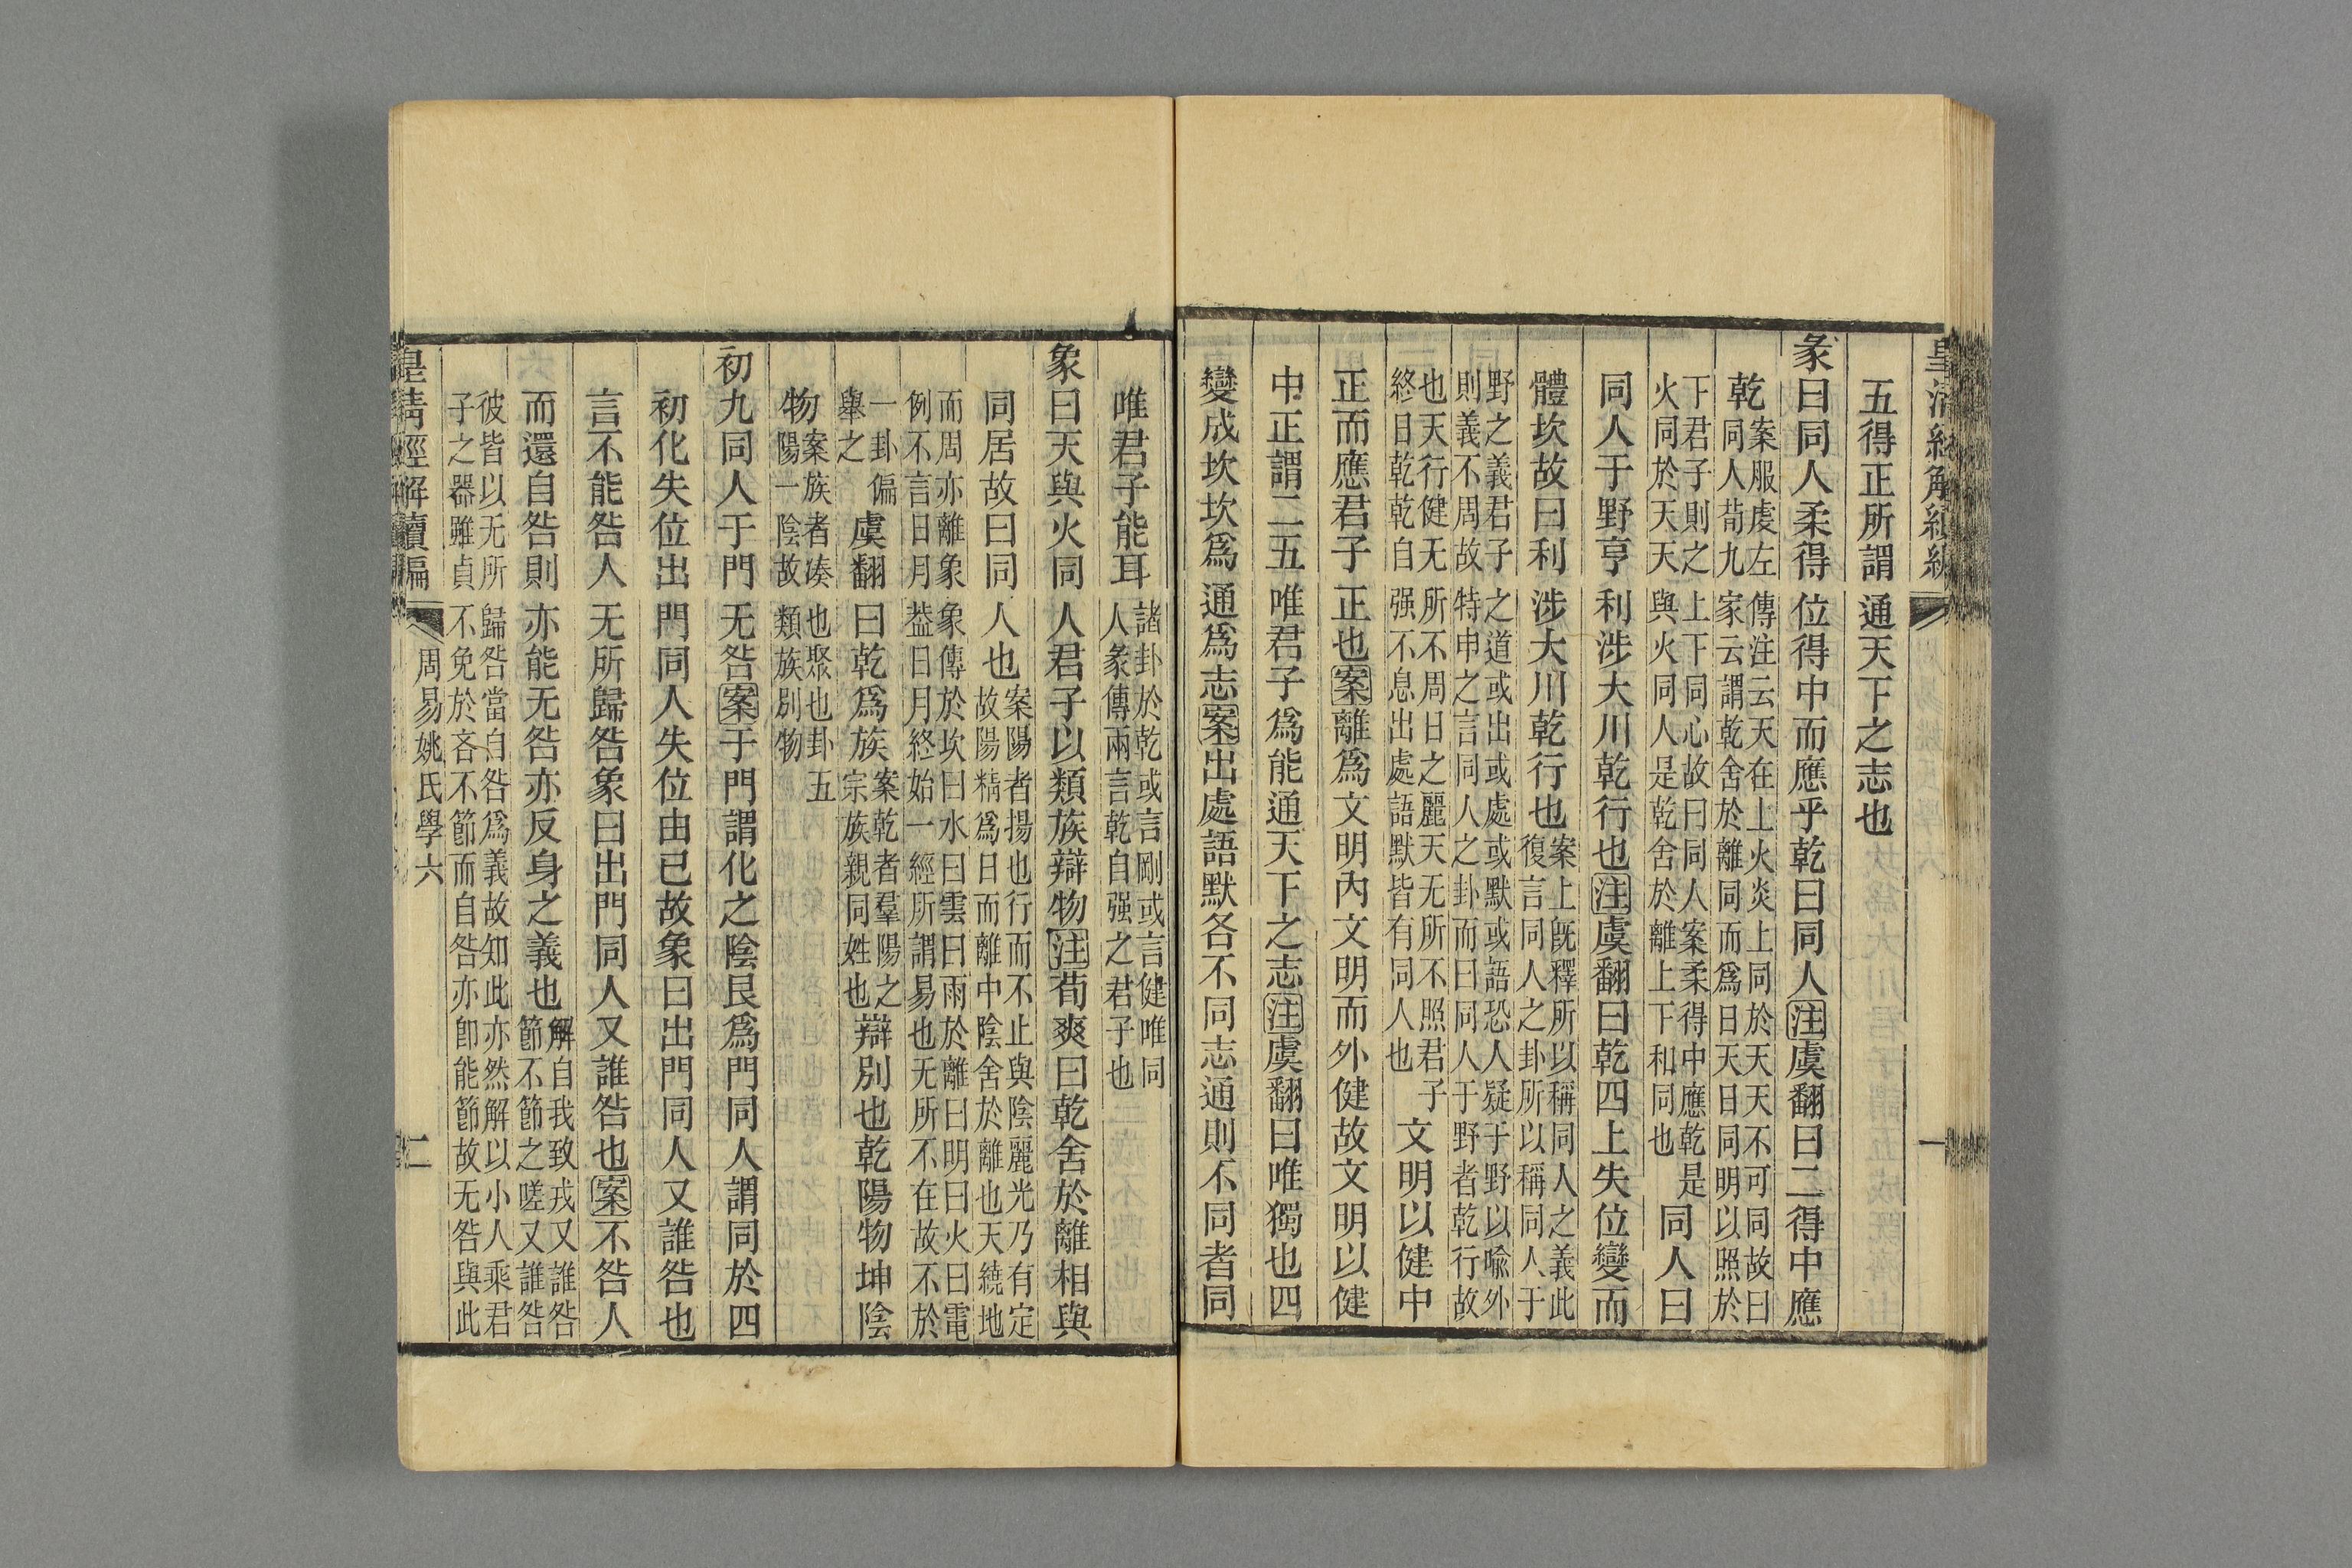 皇清經解續編 一
五得正所謂通天下之志也
彖曰同人柔得位得中而應乎乾曰同人注虞翻曰二得中應
乾案服虔左傳注云天在上火炎上同於天天不可同故曰
同人荀九家云謂乾舍於離同而爲日天日同明以照於
下君子則之上下同心故曰同人案柔得中應乾是
火同於天天與火同人是乾舍於離上下和同也同人曰
同人于野亨利涉大川乾行也注虞翻曰乾四上失位變而
體坎故曰利涉大川乾行也案上旣釋所以稱同人之義此
復言同人之卦所以稱同人于
野之義君子之道或出或處或默或語恐人疑于野以喩外
則義不周故特申之言同人之卦而曰同人于野者乾行故
也天行健无所不周日之麗天无所不照君子
終日乾乾自强不息出處語默皆有同人也文明以健中
正而應君子正也案離爲文明內文明而外健故文明以健
中正謂二五唯君子爲能通天下之志注虞翻曰唯獨也四
變成坎坎爲通爲志案出處語默各不同志通則不同者同
唯君子能耳諸卦於乾或言剛或言健唯同
人彖傳兩言乾自强之君子也
象曰天與火同人君子以類族辯物注荀爽曰乾舍於離相與
同居故曰同人也案陽者揚也行而不止與陰麗光乃有定
故陽精爲日而離中陰舍於離也天繞地
而周亦離象象傳於坎曰水曰雲曰雨於離曰明曰火曰電
例不言日月葢日月終始一經所謂易也无所不在故不於
一卦偏
舉之虞翻曰乾爲族案乾者羣陽之
宗族親同姓也辯別也乾陽物坤陰
物案族者湊也聚也卦五
陽一陰故類族別物
初九同人于門无咎案于門謂化之陰艮爲門同人謂同於四
初化失位出門同人失位由已故象曰出門同人又誰咎也
言不能咎人无所歸咎象曰出門同人又誰咎也案不咎人
而還自咎則亦能无咎亦反身之義也解自我致戎又誰咎
節不節之嗟又誰咎
彼皆以无所歸咎當自咎爲義故知此亦然解以小人乘君
子之器雖貞不免於吝不節而自咎亦卽能節故无咎與此
皇清經解續編 周易姚氏學六 二